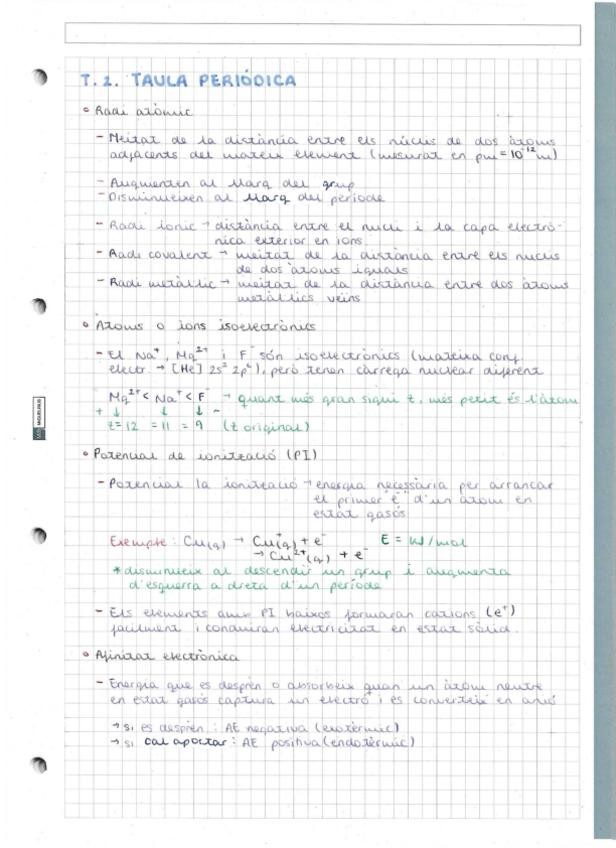 T.2. TAULA PERIÒDICA
Radi atòmic
- Meitat de la distància entre els nuclis de dos àtoms
adjacents del mateix element (mesurat en pm = 10⁻¹² m)
- Augmenten al llarg del grup
- Disminueixen al llarg del període
- Radi iònic → distància entre el nucli i la capa electrò-
nica exterior en ions
- Radi covalent → meitat de la distància entre els nuclis
de dos àtoms iguals
- Radi metàl·lic → meitat de la distància entre dos àtoms
metàl·lics veïns
Àtoms o ions isoelectrònics
- El Na⁺, Mg²⁺ i F⁻ són isoelectrònics (mateixa conf.
electr. → [He] 2s² 2p⁶), però tenen càrrega nuclear diferent
Mg²⁺ < Na⁺ < F⁻ → quant més gran sigui z, més petit és l'àtom
+ ↓ ↓ ↓ -
z=12 =11 = 9 (z original)
Potencial de ionització (PI)
- Potencial la ionització → energia necessària per arrancar
el primer "e⁻" d'un àtom en
estat gasós
Exemple: Cu(g) → Cu⁺(g) + e⁻ E = kJ/mol
→ Cu²⁺(g) + e⁻
* disminueix al descendir un grup i augmenta
d'esquerra a dreta d'un període
- Els elements amb PI baixos formaran cations (e⁺)
fàcilment i conduiran electricitat en estat sòlid.
Afinitat electrònica
- Energia que es desprèn o absorbeix quan un àtom neutre
en estat gasós captura un electró i es converteix en anió
→ si es desprèn: AE negativa (exotèrmic)
→ si cal aportar: AE positiva (endotèrmic)